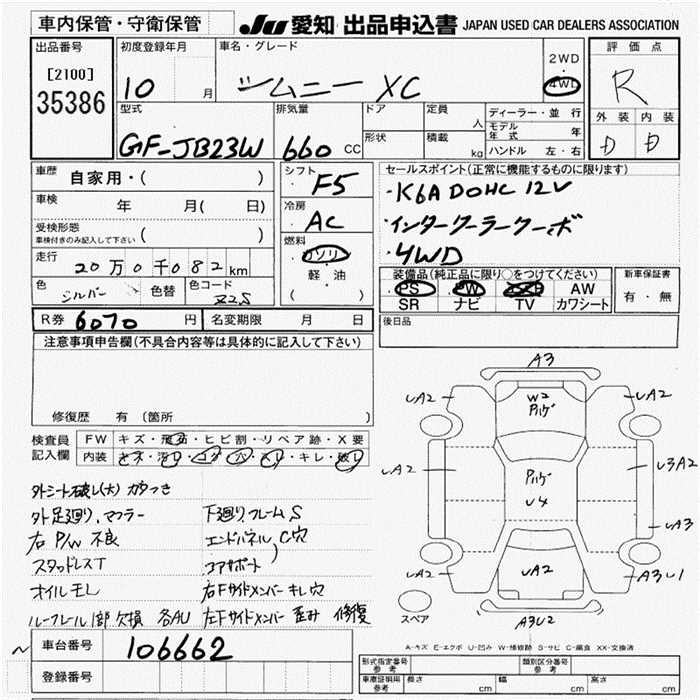 車内保管・守衛保管 JU 愛知 出品申込書 JAPAN USED CAR DEALERS ASSOCIATION
出品番号 初度登録年月 車名・グレード 2WD 評価点
[2100] 10 月 ジムニー XC 4WD R
35386 型式 排気量 ドア 定員 人 ディーラー・並行 外装 内装
モデル年式 年
GF-JB23W 660 CC 形状 積載 kg ハンドル 左・右 D D
車歴 自家用・( ) シフト F5 セールスポイント(正常に機能するものに限ります)
車検 年 月( 日) 冷房 AC ・K6A DOHC 12V
受検形態 ( ) ・インタークーラーターボ
車検付きのみ記入して下さい 燃料 ・4WD
走行 20万0千082km ガソリン
軽油 装備品(純正品に限り○をつけてください) 新車保証書
色 シルバー 色替 色コード Z2S ( ) PS PW AW 有・無
SR ナビ TV カワシート
R券 6070 円 名変期限 月 日 後日品
注意事項申告欄(不具合内容等は具体的に記入して下さい)
修復歴 有(箇所 )
検査員 FW キズ・飛石・ヒビ割・リペア跡・X要
記入欄 内装 キズ・汚レ・コゲ・穴・スレ・キレ・破レ
外シート破レ(大) ガタつき
外足廻り、マフラー 下廻り、フレームS
右P/W不良 エンドパネル、C穴
スタッドレスT コアサポート
オイルモレ 右Fサイドメンバーキレ穴
ルーフレール1部欠損 各AU 左Fサイドメンバー歪み 修復
A3
UA2 W2 パルゲ UA2
UA2 パルゲ U4 U3A2
UA3
UA2 UA2 A3U1
スペア A3U2
A-キズ E-エクボ U-凹み W-補修跡 S-サビ C-腐食 XX-交換済
車台番号 106662
登録番号
形式指定番号 参考 類別区分番号 参考
車庫証明用 参考 長さ cm 幅 cm 高さ cm